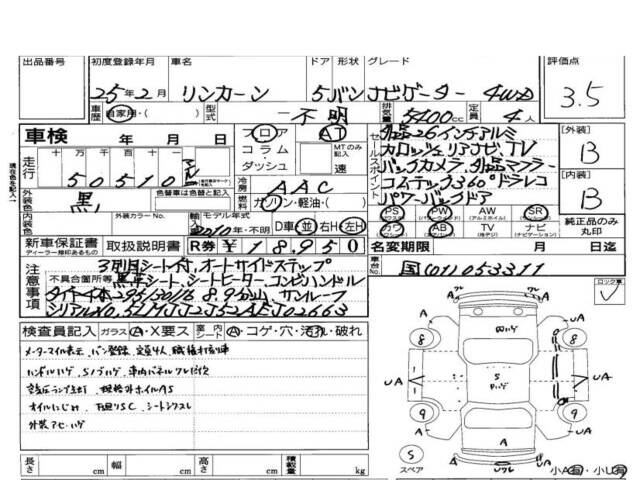 出品番号 初度登録年月 車名 ドア 形状 グレード 評価点
25年2月 リンカーン 5 バン ナビゲーター 4WD 3.5
車歴 自家用・( ) 型式 不明 排気量 5400cc 定員 4人
車検 年 月 日 フロア AT
コラム・ダッシュ MTのみ記入 速
セールスポイント 外品26インチアルミ
カロッツェリアナビ、TV
バックカメラ、外品マフラー
コムテック360°ドラレコ
パワーバックドア
[外装] B
[内装] B
走行 十万 万 千 百 十 一
50510
外装色 黒 色替車は色替と記入
冷房 AAC
燃料 ガソリン・軽油・( )
PS PW AW SR
(パワステ) (パワーウィンドウ) (アルミホイル) (サンルーフ)
カワ AB TV ナビ
(エアバッグ) (ナビゲーション)
純正品のみ丸印
内装色 外装カラーNo. 輸入 モデル年式
2010年・不明 D車 並 右H・左H
新車保証書 取扱説明書 R券 ¥18950
ディーラー捺印あるもの
名変期限 月 日迄
車台No. 国(01)053311
ロック車
注意事項 3列目シート付、オートサイドステップ
不具合箇所等 黒革シート、シートヒーター、コンビハンドル
タイヤ4本295/30/26 8.9分山、サンルーフ
シリアルNO. 5LMJJ2J52AEJ02663
検査員記入 ガラス A・X要ス 室内シート A・コゲ・穴・汚れ・破れ
メーターマイル表示、バン登録、定員4人、職権打刻車
ハンドルハゲ、Sノブハゲ、車内パネルワレ
空気圧ランプ点灯、規格外ホイルAS
オイルにじみ、下回りSC、シートシワスレ
外装アセ・ハゲ
長さ cm 幅 cm 高さ cm 積載量 kg
スペア 小A有・小U有